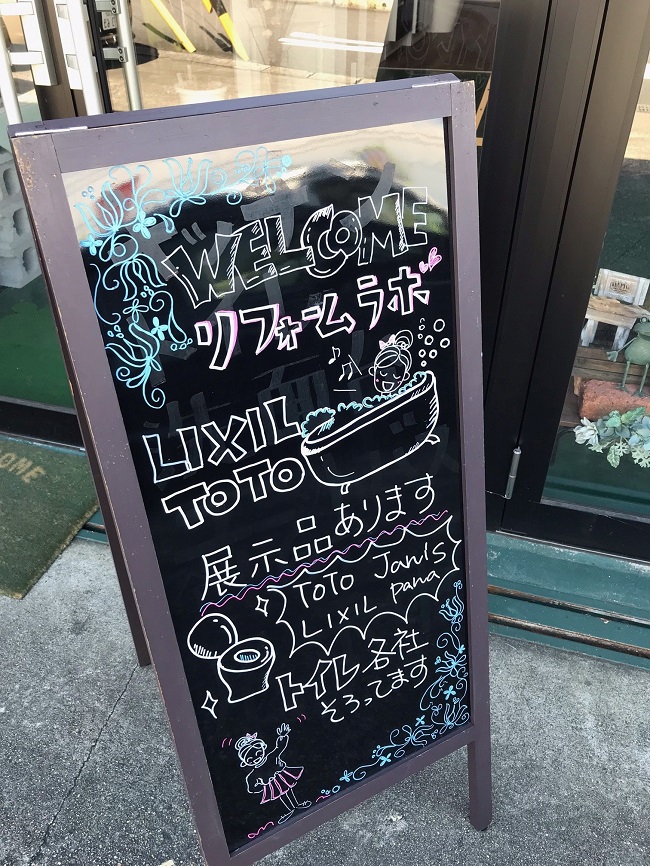 WELCOME
リフォームラボ
LIXIL
TOTO
展示品あります
TOTO Janis
LIXIL pana
トイレ各社
そろってます
COME